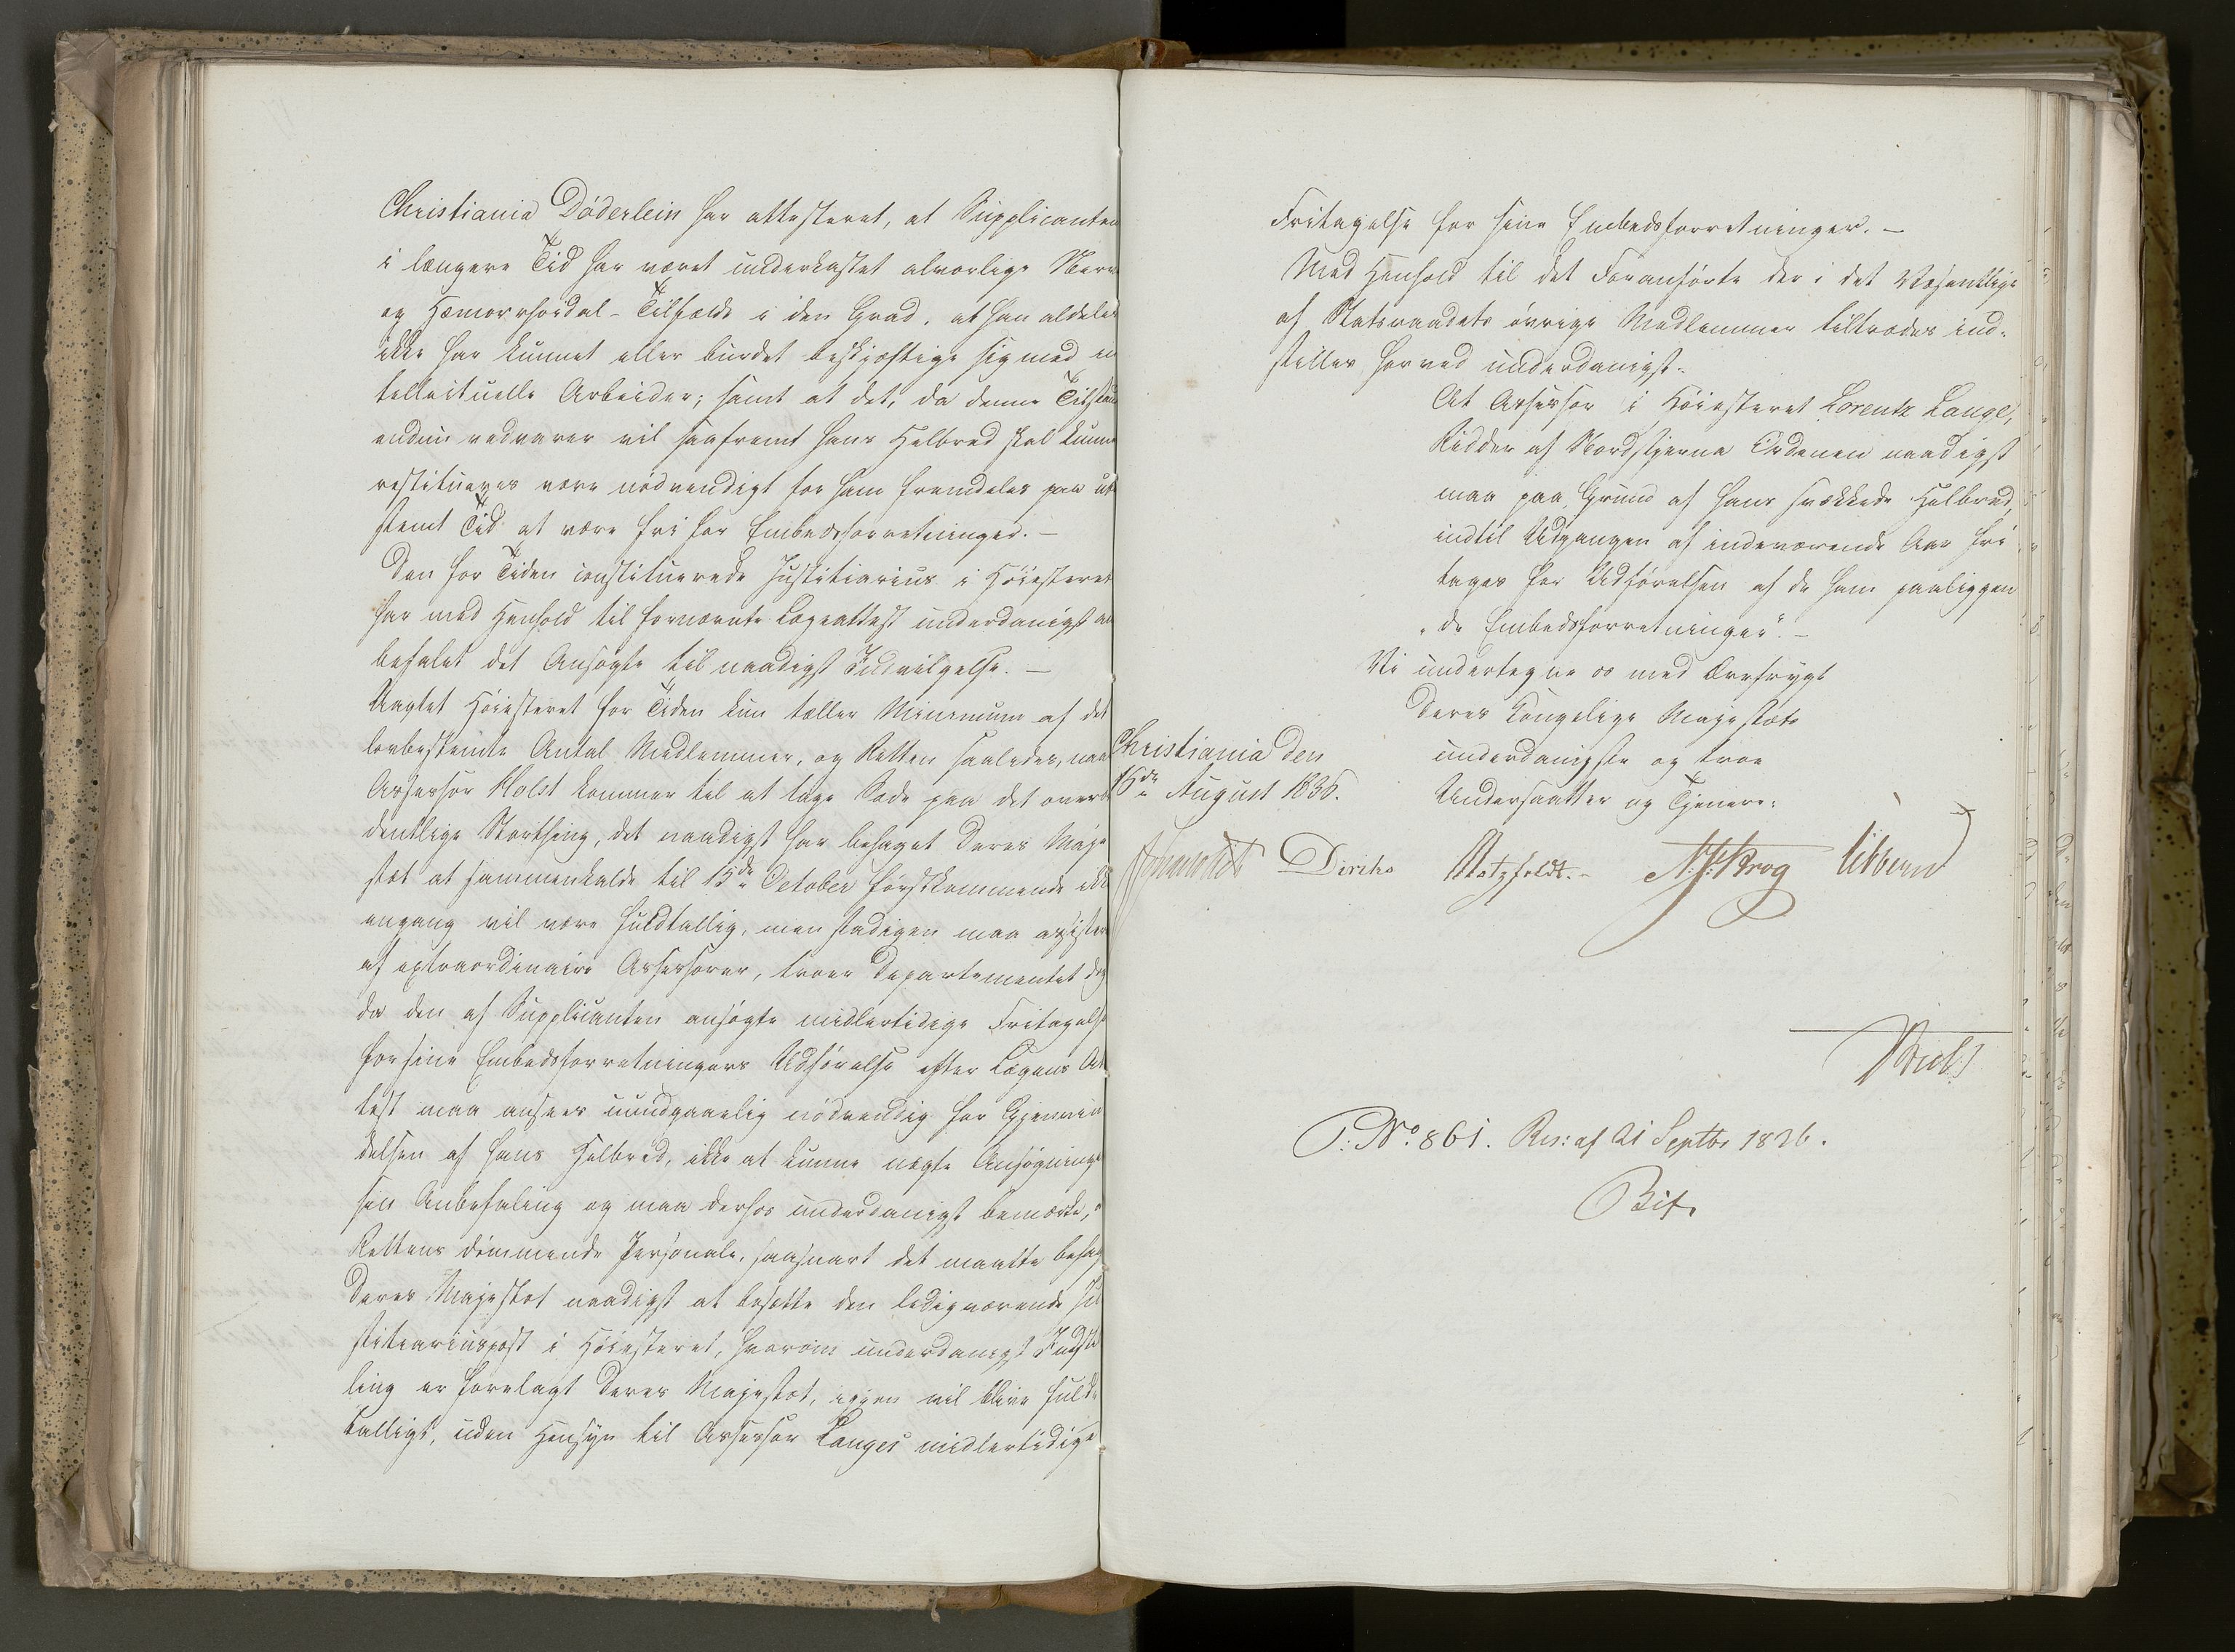 Christiania Døderlein har attesteret, at Supplicanten
i længere Tid har været underkastet alvorlige Nerve
og Hæmorrhoidal-Tilfælde i den Grad, at han aldeles
ikke har kunnet eller burdet beskjæftige sig med in
tellectuelle Arbeider; samt at det, da denne Tilstand
endnu vedvarer vil saafremt hans Helbred skal kunne
restitueres være nødvendigt for ham fremdeles paa ube
stemt Tid at være fri for Embedsforretninger. —
Den for Tiden constituerede Justitiarius i Høiesteret
har med Henhold til fornævnte Lægeattest underdanigst an
befalet det Ansøgte til naadigst Indvilgelse. —
Uagtet Høiesteret for Tiden kun tæller Minimum af det
lovbestemte Antal Medlemmer, og Retten saaledes, naar
Assessor Holst kommer til at tage Sæde paa det overor
dentlige Storthing, det naadigst har behaget Deres Maje
stæt at sammenkalde til 15de October førstkommende ikke
engang vil være fuldtallig, men stadigen maa assisteres
af extraordinaire Assessorer, troer Departementet dog
da den af Supplicanten ansøgte midlertidige Fritagelse
for sine Embedsforretningers Udførelse efter Lægens At
test maa ansees uundgaaelig nødvendig for Gjenvin
delsen af hans Helbred, ikke at kunne nægte Ansøgningen
sin Anbefaling og maa derhos underdanigst bemærke, at
Rettens dømmende Personale, saasnart det maatte behage
Deres Majestæt naadigst at besætte den ledigværende Ju
stitiariuspost i Høiesteret, hvorom underdanigst Indstil
ling er forelagt Deres Majestæt, igjen vil blive fuld
talligt, uden Hensyn til Assessor Langes midlertidige
Fritagelse for sine Embedsforretninger. —
Med Henhold til det Foranførte der i det Væsentlige
af Statsraadets øvrige Medlemmer tiltrædes ind-
stilles herved underdanigst:
At Assessor i Høiesteret Lorentz Lange,
Ridder af Nordstjerne Ordenen naadigst
maa paa Grund af hans svækkede Helbred,
indtil Udgangen af indeværende Aar fri
tages for Udførelsen af de ham paaliggen
"de Embedsforretninger". —
Vi undertegne os med Ærefrygt
Deres Kongelige Majestæts
Christiania den underdanigste og troe
16de August 1836. Undersaatter og Tjenere:
Diriks Motzfeldt. N. J. Krog Vibberud
P: No. 861. Res: af 21 Septbr 1836.